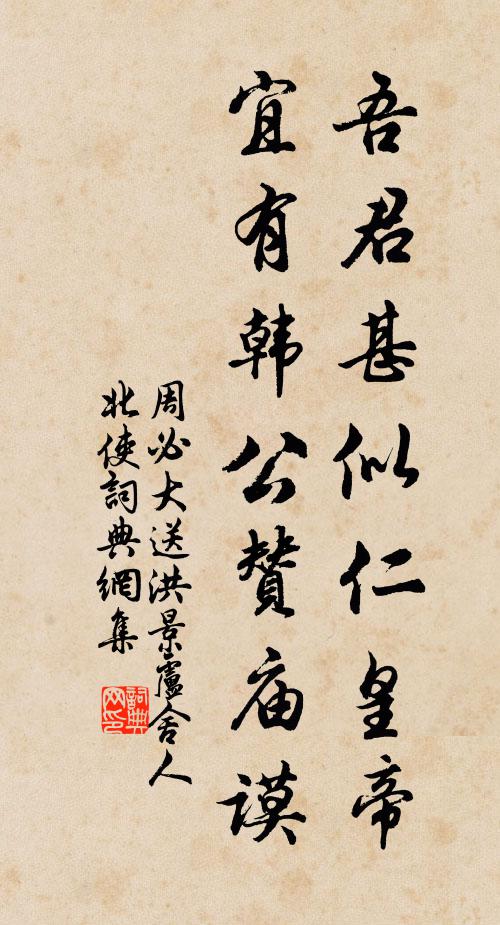 吾君甚似仁皇帝
宜有韩公赞庙谟
周必大送洪景盧舍人
北使詞典網集
詞典
网印